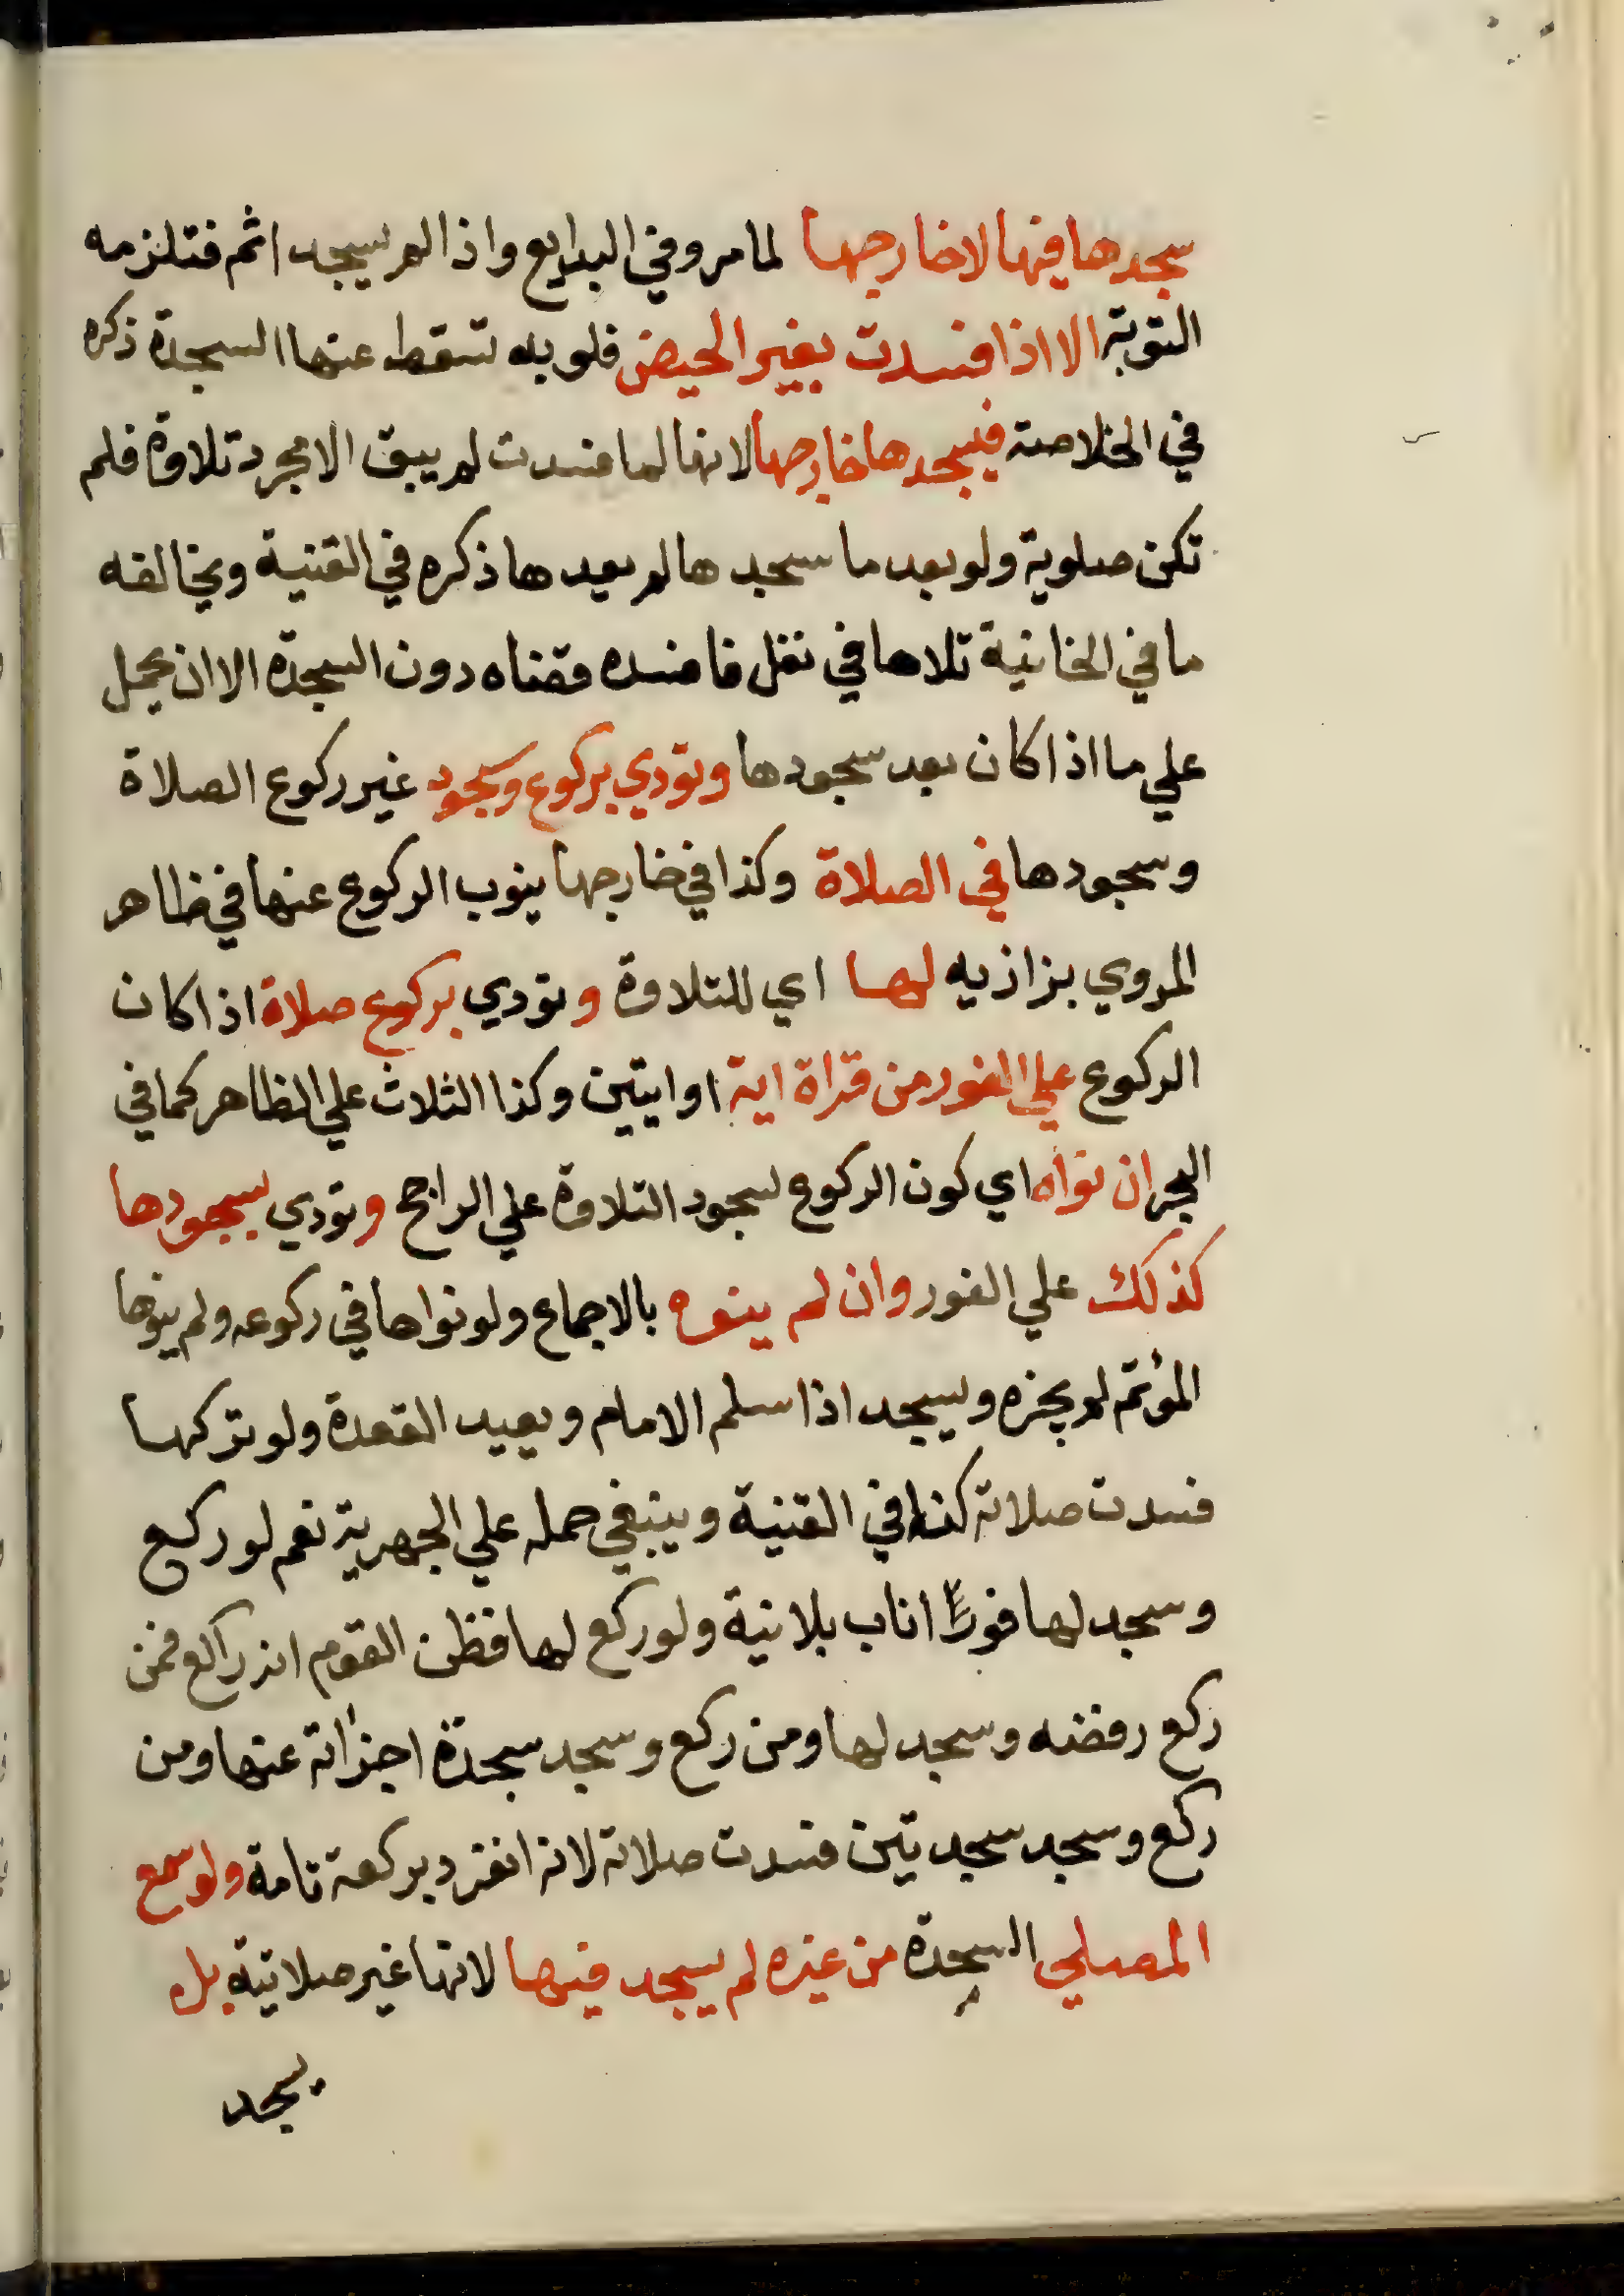 سجدها فيها لا خارجها لما مر وفي البدايع واذا لم يسجد اثم فتلزمه
التوبة الا اذا فسدت بغير الحيض فلو به تسقط عنها السجدة ذكره
في الخلاصة فيسجدها خارجها لانها لما فسدت لم يبق الا مجرد تلاوة فلم
تكن صلوية ولو بعد ما سجدها لم يعدها ذكره في القنية ويخالفه
ما في الخانية تلاها في نفل فافسده قضاه دون السجدة الا ان يحمل
علي ما اذا كان بعد سجودها وتودي بركوع وسجود غير ركوع الصلاة
وسجودها في الصلاة وكذا في خارجها ينوب الركوع عنها في ظاهر
المروي بزازيه لها اي للتلاوة وتودي بركوع صلاة اذا كان
الركوع علي الفور من قراة اية او ايتين وكذا الثلاث علي الظاهر كما في
البحر ان نواه اي كون الركوع لسجود التلاوة علي الراجح وتودي بسجودها
كذلك علي الفور وان لم ينوه بالاجماع ولو نواها في ركوعه ولم ينوها
المؤتم لم يجزه ويسجد اذا سلم الامام ويعيد القعدة ولو تركها
فسدت صلاته كذا في القنية وينبغي حمله علي الجهرية نعم لو ركع
وسجد لها فورا اناب بلا نية ولو ركع لها فظن القوم انه راكع فمن
ركع رفضه وسجد لها ومن ركع وسجد سجدة اجزأته عنها ومن
ركع وسجد سجدتين فسدت صلاته لانه انفرد بركعة تامة ولو سمع
المصلي السجدة من غيره لم يسجد فيها لانها غير صلاتية بل
يسجد